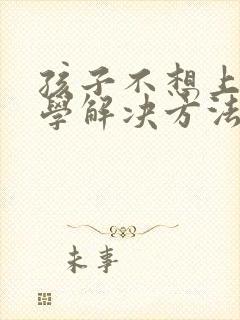 孩子不想上
學解决方法
未事